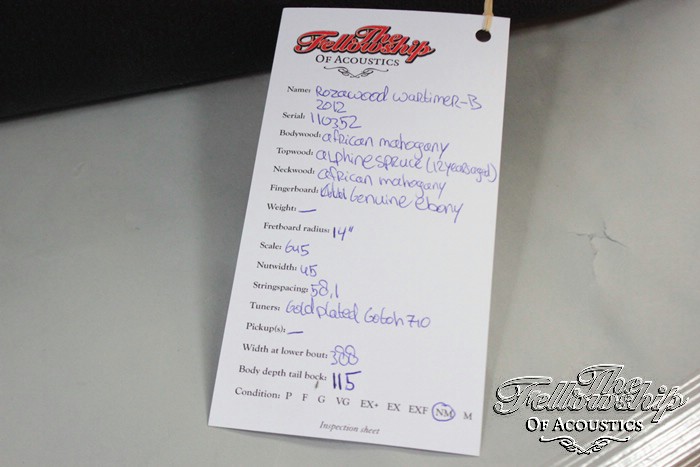 The
Fellowship
OF ACOUSTICS
Name: Rozawood wartimer-B
2012
Serial: 110352
Bodywood: african mahogany
Topwood: alphine spruce (12 years aged)
Neckwood: african mahogany
Fingerboard: Genuine ebony
Weight: —
Fretboard radius: 14"
Scale: 645
Nutwidth: 45
Stringspacing: 58,1
Tuners: Goldplated Gotoh 710
Pickup(s): —
Width at lower bout: 388
Body depth tail bock: 115
Condition: P F G VG EX+ EX EXF NM M
Inspection sheet
The
Fellowship
OF ACOUSTICS